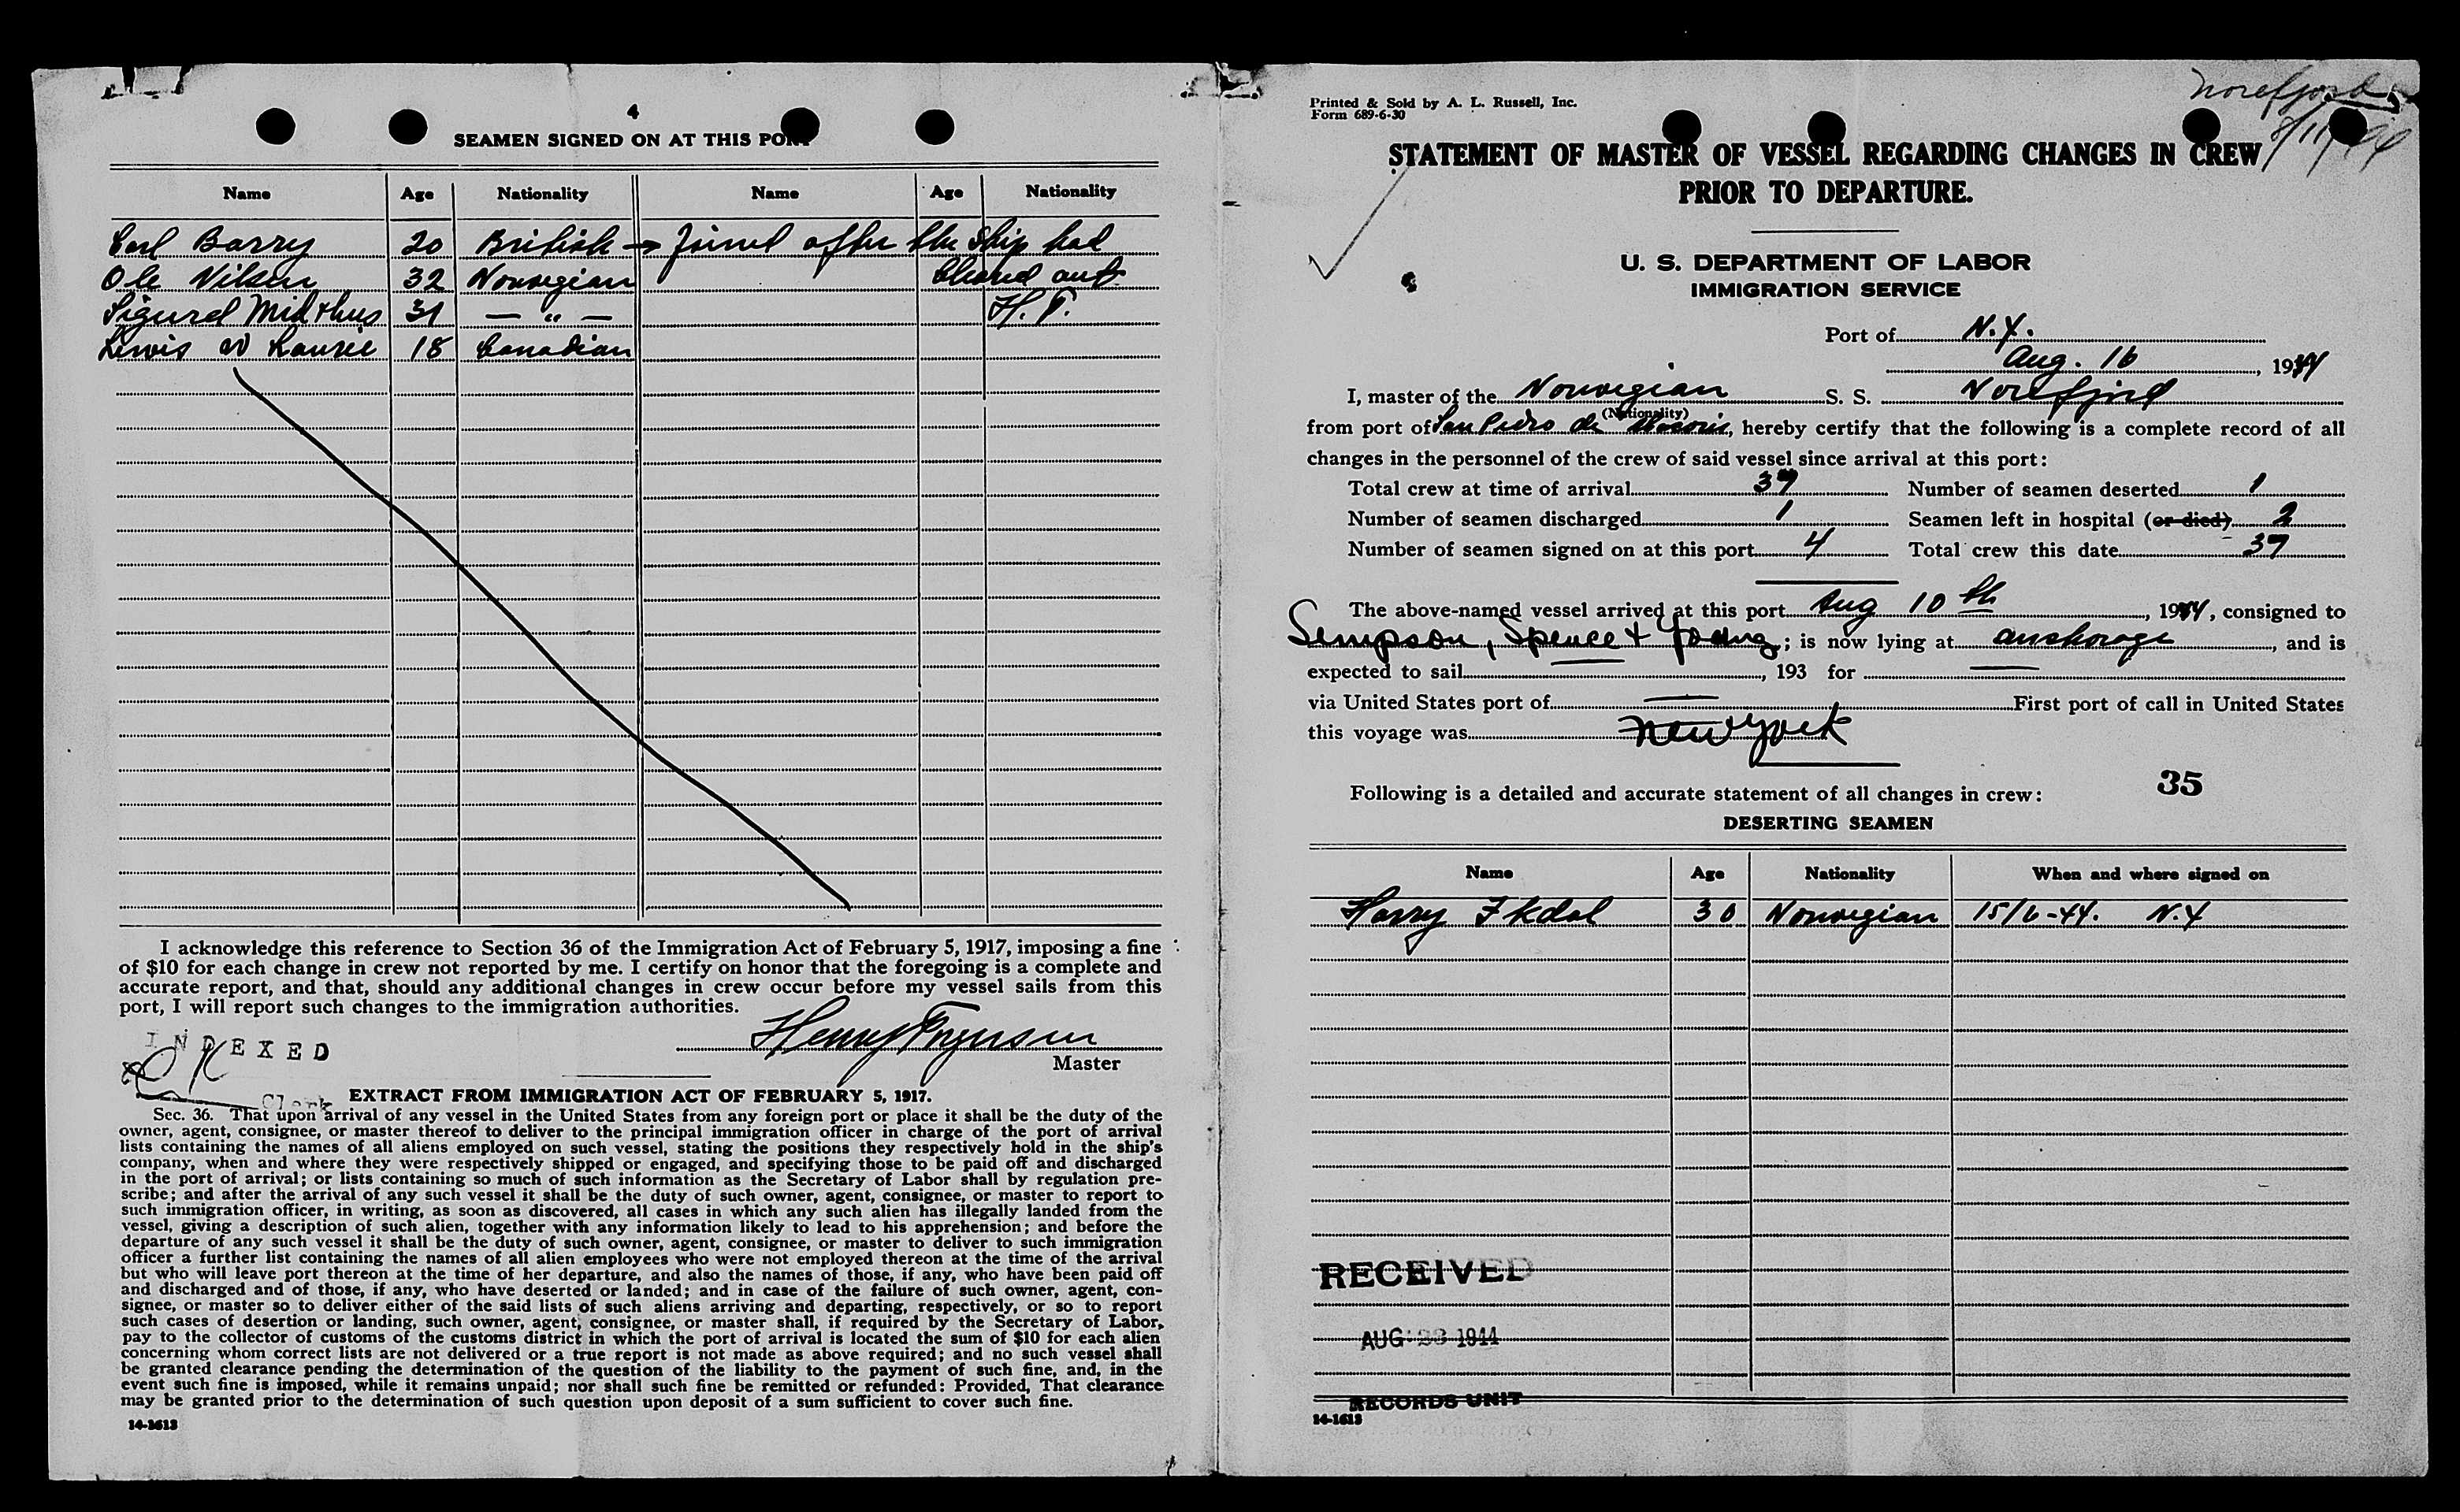 4
SEAMEN SIGNED ON AT THIS PORT
Name Age Nationality Name Age Nationality
Earl Barry 20 British → Joined after the ship had
Ole Nilsen 32 Norwegian cleared out
Sigurd Midthus 31 — " — H. T.
Lewis W Laurie 18 Canadian
I acknowledge this reference to Section 36 of the Immigration Act of February 5, 1917, imposing a fine
of $10 for each change in crew not reported by me. I certify on honor that the foregoing is a complete and
accurate report, and that, should any additional changes in crew occur before my vessel sails from this
port, I will report such changes to the immigration authorities.
INDEXED
Henry
Master
Clerk
EXTRACT FROM IMMIGRATION ACT OF FEBRUARY 5, 1917.
Sec. 36. That upon arrival of any vessel in the United States from any foreign port or place it shall be the duty of the
owner, agent, consignee, or master thereof to deliver to the principal immigration officer in charge of the port of arrival
lists containing the names of all aliens employed on such vessel, stating the positions they respectively hold in the ship's
company, when and where they were respectively shipped or engaged, and specifying those to be paid off and discharged
in the port of arrival; or lists containing so much of such information as the Secretary of Labor shall by regulation pre-
scribe; and after the arrival of any such vessel it shall be the duty of such owner, agent, consignee, or master to report to
such immigration officer, in writing, as soon as discovered, all cases in which any such alien has illegally landed from the
vessel, giving a description of such alien, together with any information likely to lead to his apprehension; and before the
departure of any such vessel it shall be the duty of such owner, agent, consignee, or master to deliver to such immigration
officer a further list containing the names of all alien employees who were not employed thereon at the time of the arrival
but who will leave port thereon at the time of her departure, and also the names of those, if any, who have been paid off
and discharged and of those, if any, who have deserted or landed; and in case of the failure of such owner, agent, con-
signee, or master so to deliver either of the said lists of such aliens arriving and departing, respectively, or so to report
such cases of desertion or landing, such owner, agent, consignee, or master shall, if required by the Secretary of Labor,
pay to the collector of customs of the customs district in which the port of arrival is located the sum of $10 for each alien
concerning whom correct lists are not delivered or a true report is not made as above required; and no such vessel shall
be granted clearance pending the determination of the question of the liability to the payment of such fine, and, in the
event such fine is imposed, while it remains unpaid; nor shall such fine be remitted or refunded: Provided, That clearance
may be granted prior to the determination of such question upon deposit of a sum sufficient to cover such fine.
14-1613
Norefjord
8/11/44
Printed & Sold by A. L. Russell, Inc.
Form 689-6-30
STATEMENT OF MASTER OF VESSEL REGARDING CHANGES IN CREW
PRIOR TO DEPARTURE.
U. S. DEPARTMENT OF LABOR
IMMIGRATION SERVICE
Port of N.Y.
Aug. 16, 1944
I, master of the Norwegian S. S. Norefjord
(Nationality)
from port of San Pedro de Macoris, hereby certify that the following is a complete record of all
changes in the personnel of the crew of said vessel since arrival at this port:
Total crew at time of arrival 37 Number of seamen deserted 1
Number of seamen discharged 1 Seamen left in hospital (or died) 2
Number of seamen signed on at this port 4 Total crew this date 37
The above-named vessel arrived at this port Aug 10th, 1944, consigned to
Simpson, Spence + Young; is now lying at anchorage, and is
expected to sail —, 193 for —
via United States port of — First port of call in United States
this voyage was New York
35
Following is a detailed and accurate statement of all changes in crew:
DESERTING SEAMEN
Name Age Nationality When and where signed on
Harry Ekdal 30 Norwegian 15/6-44. N.Y
RECEIVED
AUG 23 1944
RECORDS UNIT
14-1613